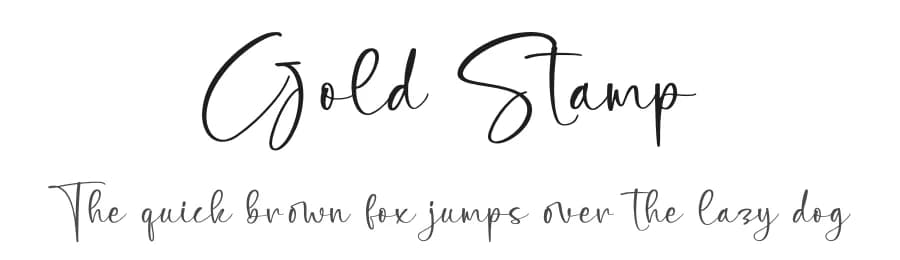 Gold Stamp
The quick brown fox jumps over the lazy dog